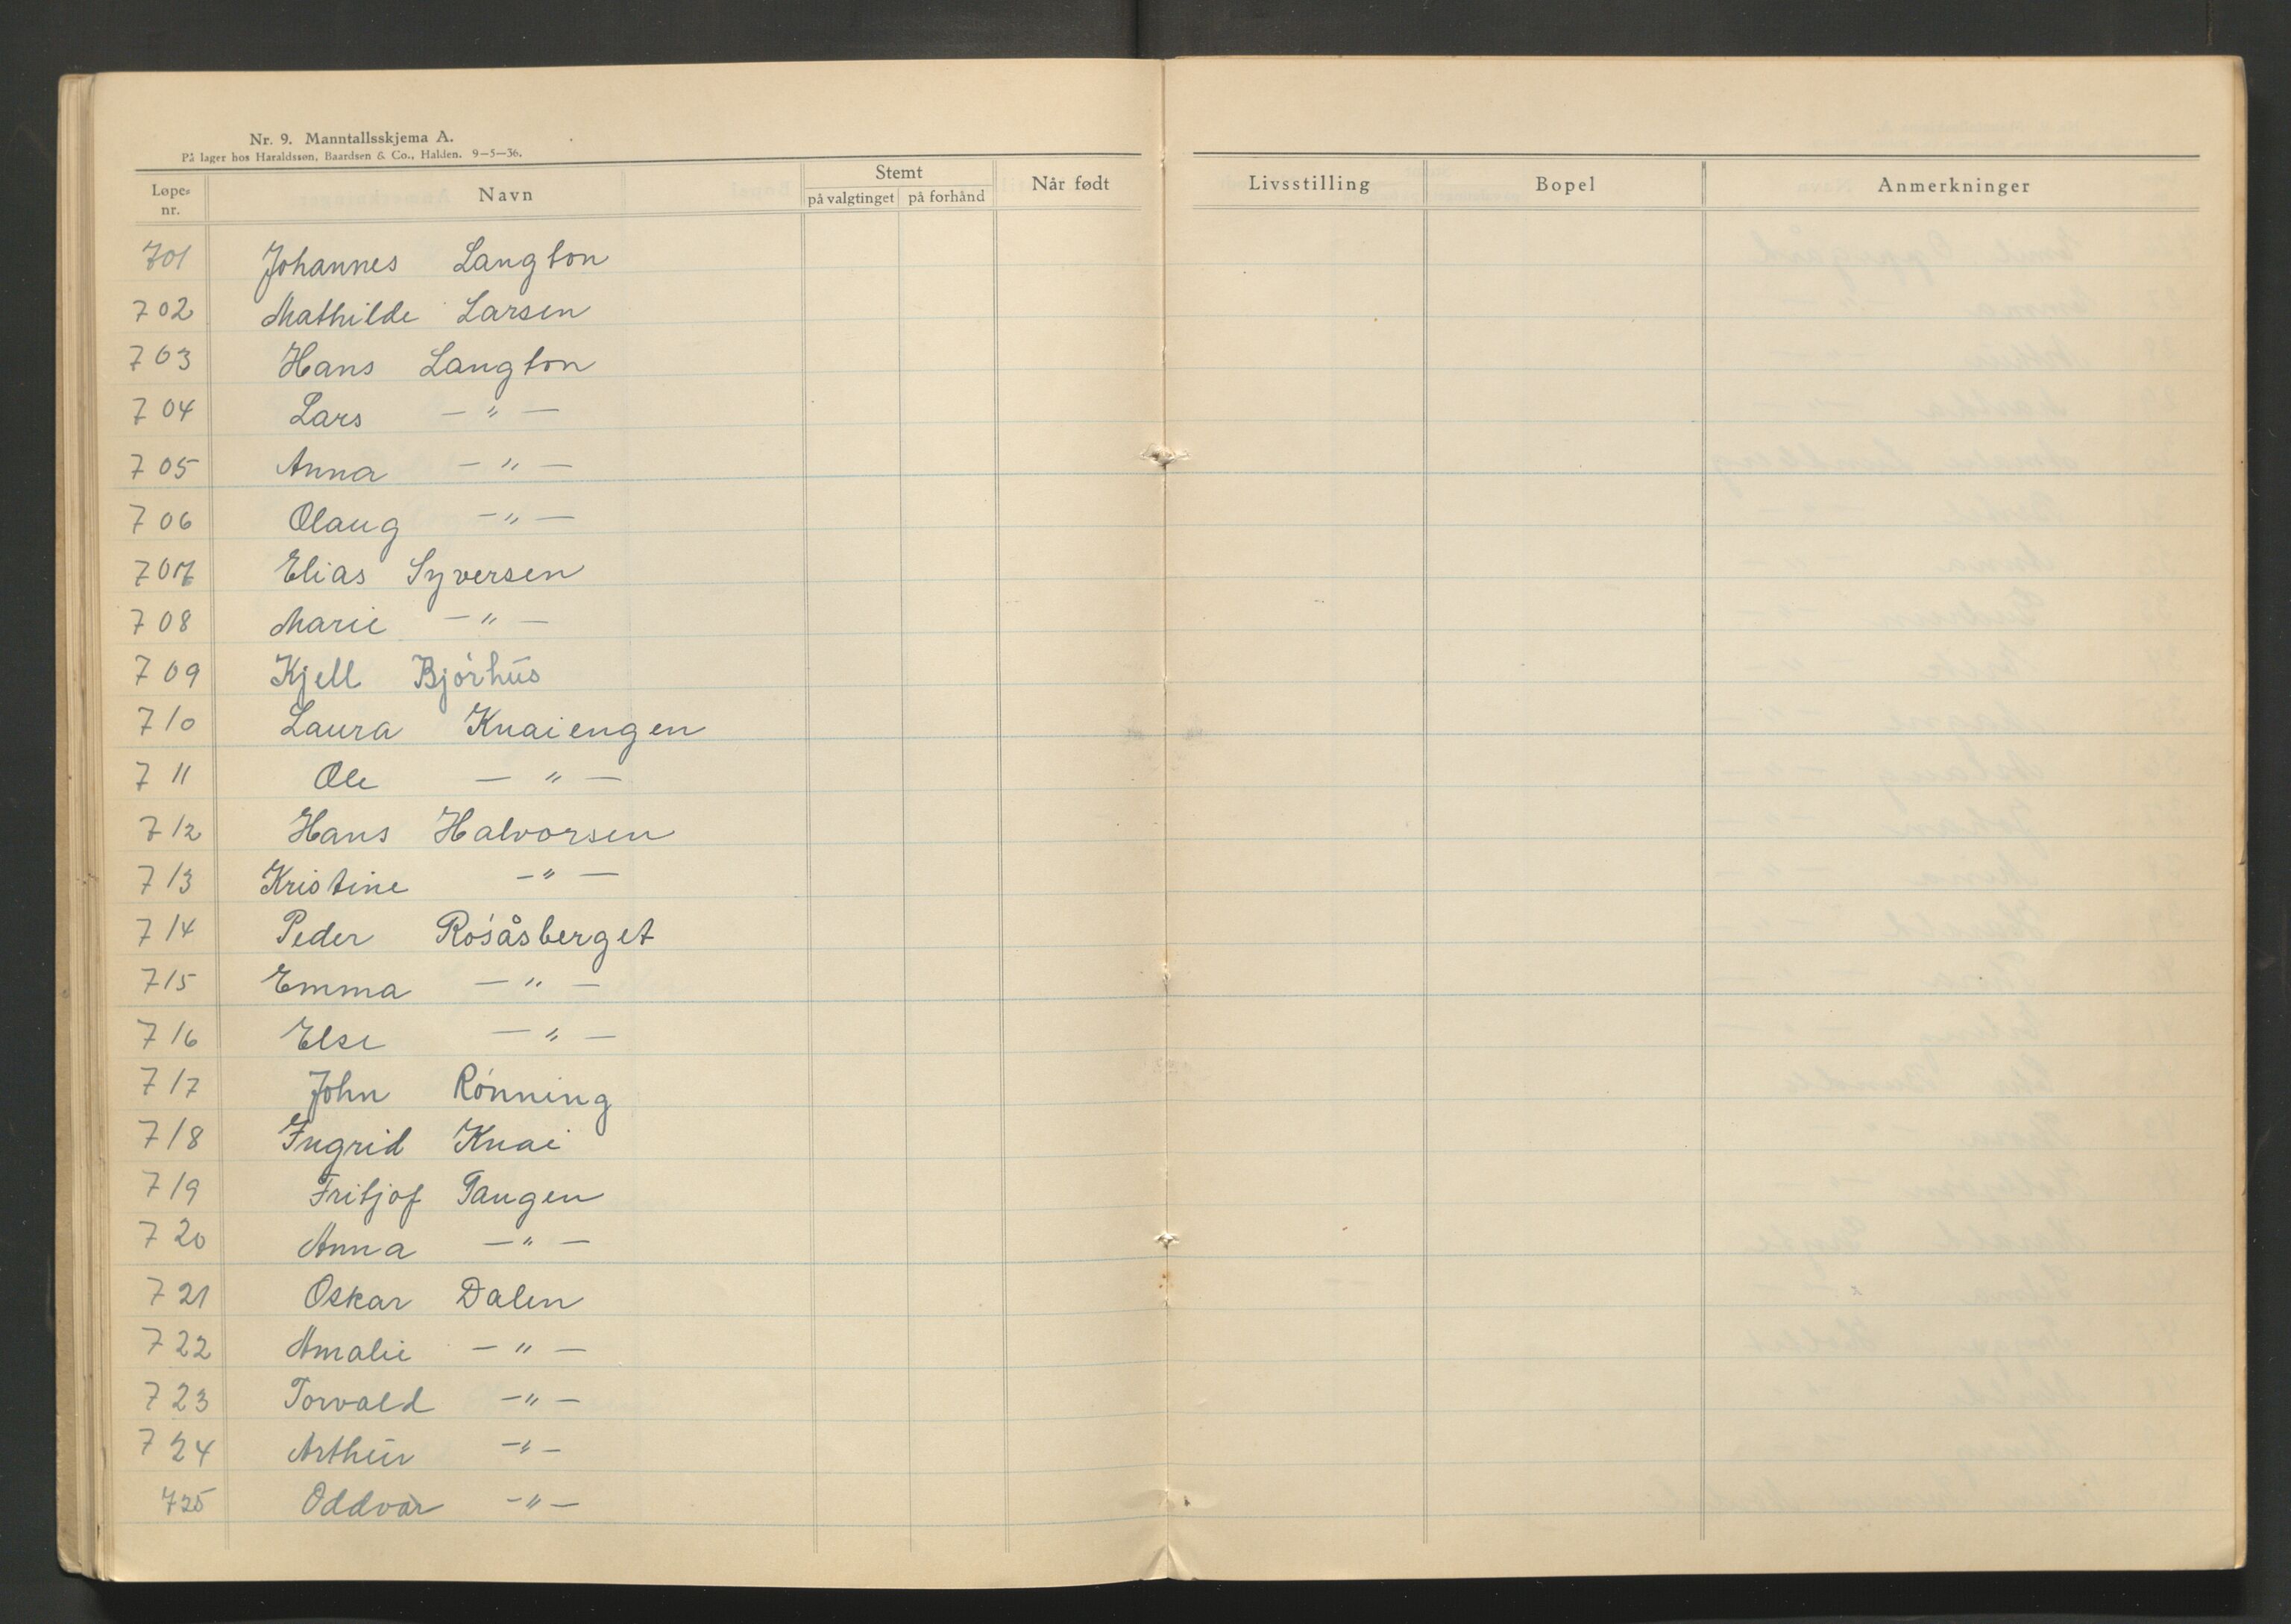 Nr. 9. Manntallsskjema A.
På lager hos Haraldssøn, Baardsen & Co., Halden. 9—5—36.
Løpe-nr. Navn Stemt på valgtinget på forhånd Når født Livsstilling Bopel Anmerkninger
701 Johannes Langton
702 Mathilde Larsen
703 Hans Langton
704 Lars — " —
705 Anna — " —
706 Olaug — " —
707 Elias Syversen
708 Marie — " —
709 Kjell Bjórhús
710 Laura Knaiengen
711 Ole — " —
712 Hans Halvorsen
713 Kristine — " —
714 Peder Rósåsberget
715 Emma — " —
716 Else — " —
717 John Rónning
718 Ingrid Knai
719 Fritjof Tangen
720 Anna — " —
721 Oskar Dalen
722 Amalie — " —
723 Torvald — " —
724 Arthur — " —
725 Oddvar — " —